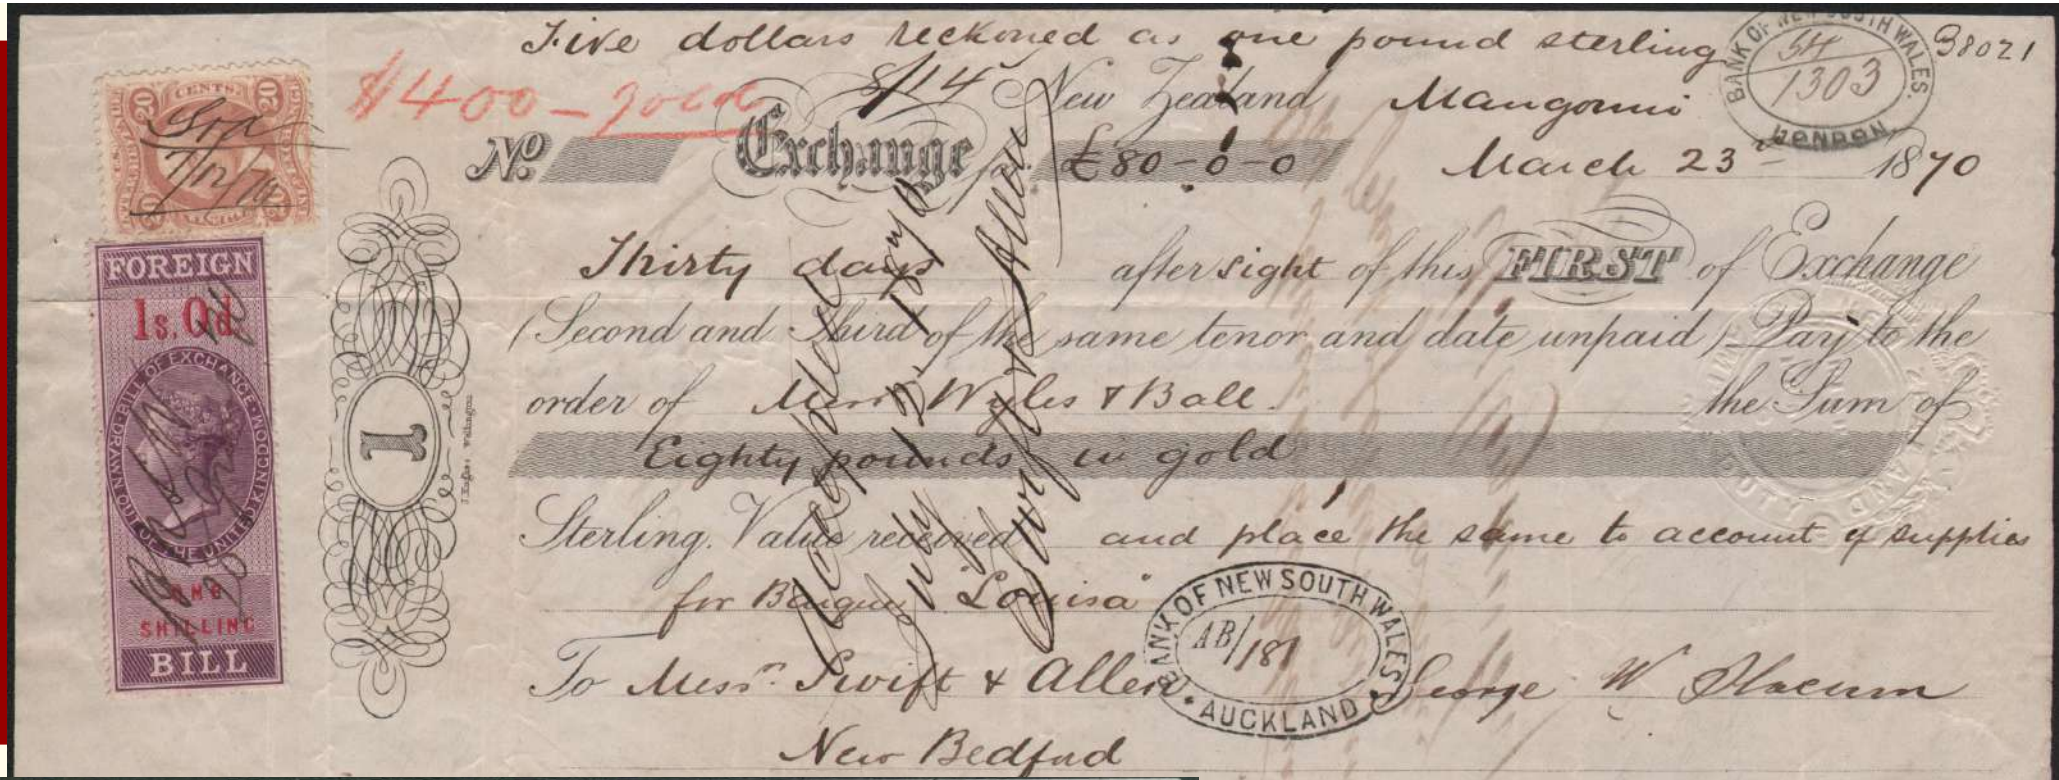 Five dollars reckoned as one pound sterling
38021
BANK OF NEW SOUTH WALES.
LONDON
1303
$400-gold
8/14
New Zealand Mangonui
No Exchange for £80-0-0 March 23rd 1870
20 CENTS. 20
20 20
7/12/70
FOREIGN
1s. 0d
BILL OF EXCHANGE
DRAWN OUT OF THE UNITED KINGDOM
ONE
SHILLING
BILL
1
Thirty days after sight of this FIRST of Exchange
(Second and Third of the same tenor and date unpaid) Pay to the
order of Messrs Wyles & Ball. the Sum of
Eighty pounds in gold
Sterling. Value received and place the same to account of supplies
for Barque "Louisa"
To Messrs. Swift & Allen George W Slocum
New Bedford
BANK OF NEW SOUTH WALES
AB/181
AUCKLAND
Accepted
July 13, 1870
Swift & Allen